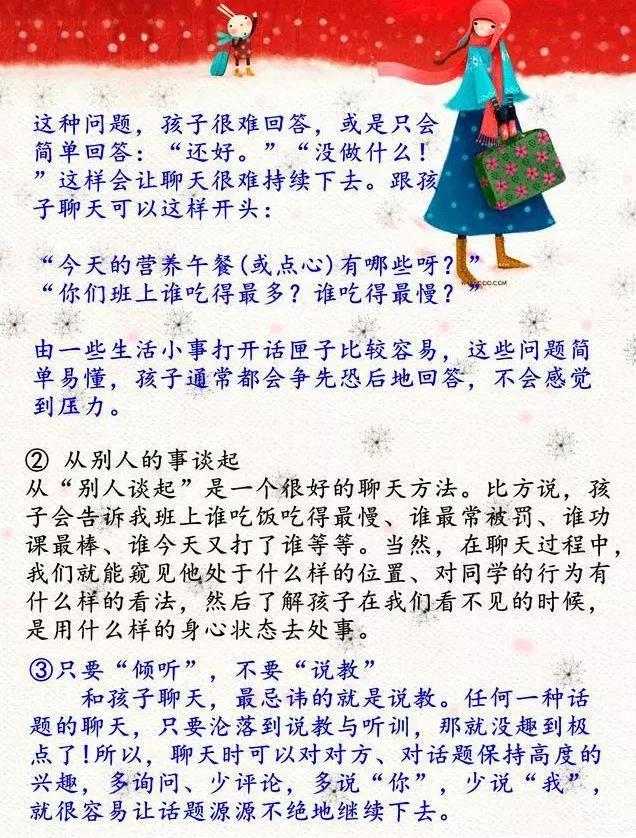 这种问题，孩子很难回答，或是只会
简单回答：“还好。”“没做什么！
”这样会让聊天很难持续下去。跟孩
子聊天可以这样开头：
“今天的营养午餐(或点心)有哪些呀？”
“你们班上谁吃得最多？谁吃得最慢？”
由一些生活小事打开话匣子比较容易，这些问题简
单易懂，孩子通常都会争先恐后地回答，不会感觉
到压力。
② 从别人的事谈起
从“别人谈起”是一个很好的聊天方法。比方说，孩
子会告诉我班上谁吃饭吃得最慢、谁最常被罚、谁功
课最棒、谁今天又打了谁等等。当然，在聊天过程中，
我们就能窥见他处于什么样的位置、对同学的行为有
什么样的看法，然后了解孩子在我们看不见的时候，
是用什么样的身心状态去处事。
③只要“倾听”，不要“说教”
和孩子聊天，最忌讳的就是说教。任何一种话
题的聊天，只要沦落到说教与听训，那就没趣到极
点了!所以，聊天时可以对对方、对话题保持高度的
兴趣，多询问、少评论，多说“你”，少说“我”，
就很容易让话题源源不绝地继续下去。